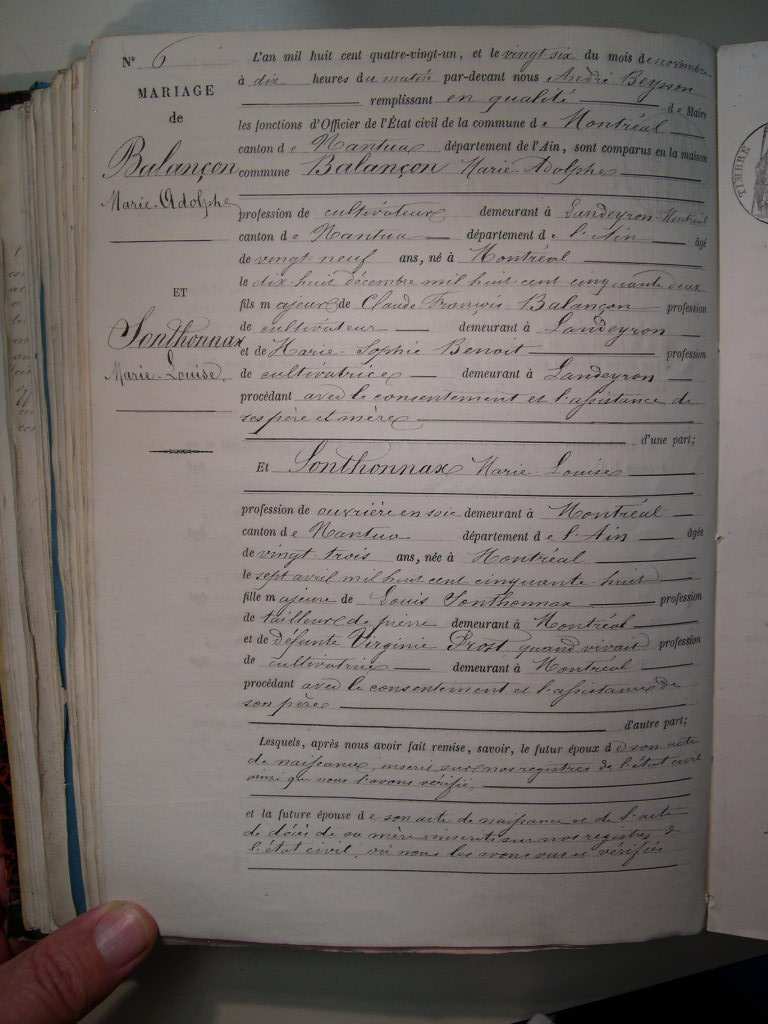 N° 6
MARIAGE
de
Balançon
Marie-Adolphe
ET
Sonthonnax
Marie-Louise.
L'an mil huit cent quatre-vingt-un, et le vingt six du mois de novembre
à dix heures du matin par-devant nous André
remplissant en qualité de Maire
les fonctions d'Officier de l'État civil de la commune de Montréal
canton de Nantua département de l'Ain, sont comparus en la maison
commune Balançon Marie-Adolphe
profession de cultivateur demeurant à Landeyron-Montréal
canton de Nantua département de l'Ain âgé
de vingt neuf ans, né à Montréal
le dix huit décembre mil huit cent cinquante deux
fils majeur de Claude François Balançon profession
de cultivateur demeurant à Landeyron
et de Marie-Sophie Benoit profession
de cultivatrice demeurant à Landeyron
procédant avec le consentement et l'assistance de
ses père et mère
d'une part;
Et Sonthonnax Marie-Louise
profession de ouvrière en soie demeurant à Montréal
canton de Nantua département de l'Ain âgée
de vingt trois ans, née à Montréal
le sept avril mil huit cent cinquante-huit
fille majeure de Louis Sonthonnax profession
de tailleur de pierre demeurant à Montréal
et de défunte Virginie Prost quand vivait profession
de cultivatrice demeurant à Montréal
procédant avec le consentement et l'assistance de
son père
d'autre part;
Lesquels, après nous avoir fait remise, savoir, le futur époux de son acte
de naissance, inscrit sur nos registres de l'état civil
ainsi que nous l'avons vérifié,
et la future épouse de son acte de naissance et de l'acte
de décès de sa mère inscrits sur nos registres de
l'état civil, où nous les avons vus et vérifiés
TIMBRE